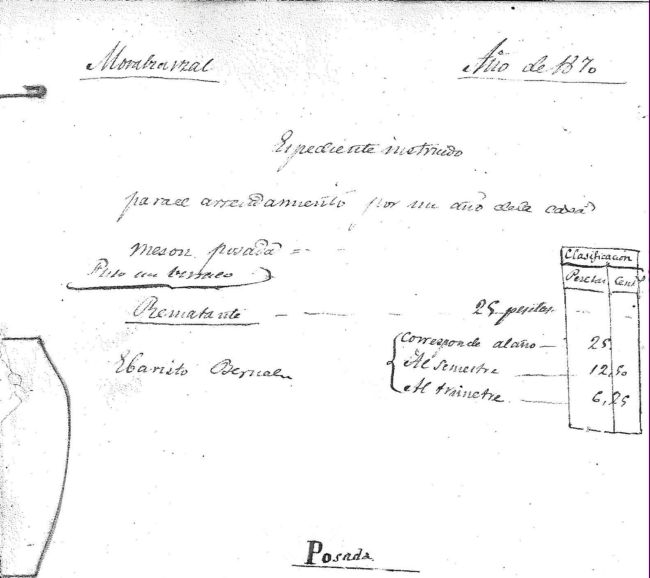 Moralzarzal
Año de 1870
Expediente instruido
para el arrendamiento por un año de la casa
meson posada = =
Puso un verraco
Clasificacion
Pesetas Cent
Rematante — — — 25 pesetas
Corresponde al año — 25
Al semestre — 12,50
Al trimetre — 6,25
Posada